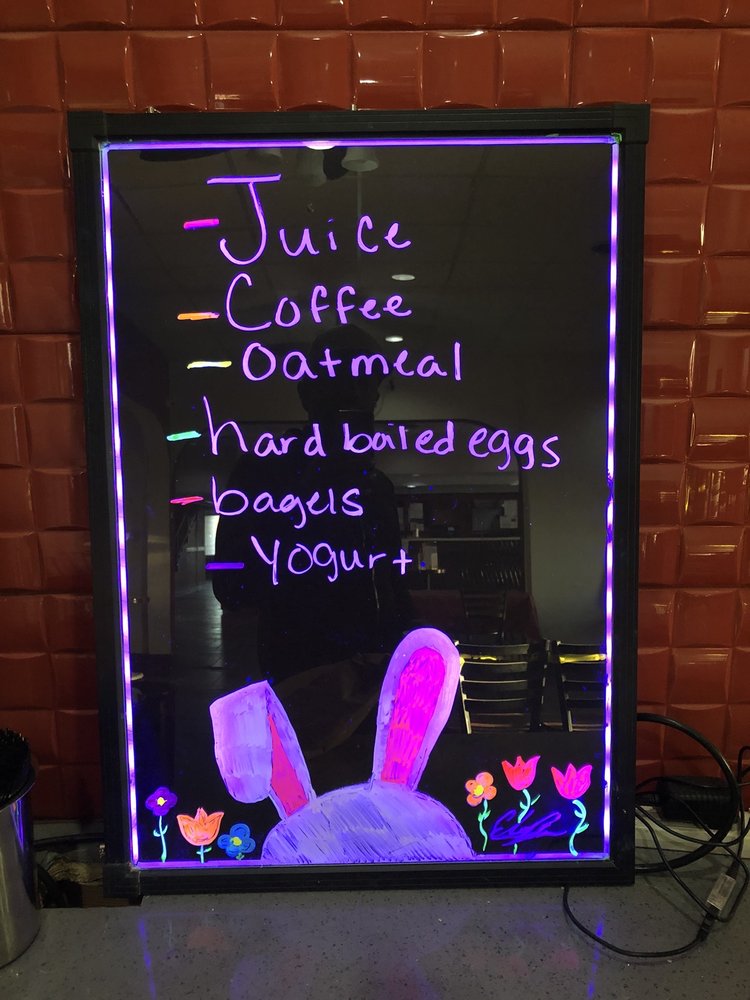 - Juice
- Coffee
- Oatmeal
- hard boiled eggs
- bagels
- Yogurt